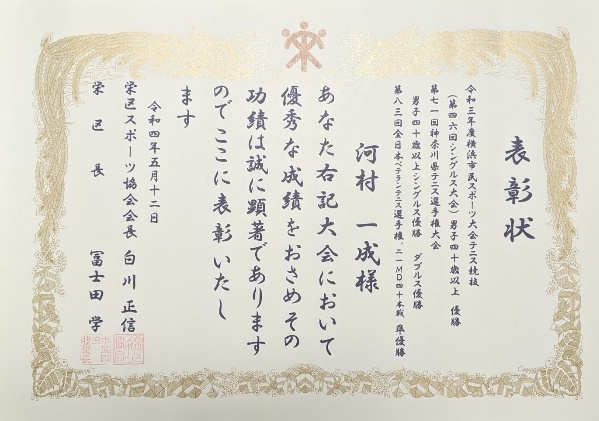 表彰状
令和三年度横浜市民スポーツ大会テニス競技
(第四六回シングルス大会)男子四十歳以上 優勝
第七一回神奈川県テニス選手権大会
男子四十歳以上シングルス優勝 ダブルス優勝
第八三回全日本ベテランテニス選手権、二一MD四十本戦 準優勝
河村 一成様
あなた右記大会において
優秀な成績をおさめその
功績は誠に顕著であります
のでここに表彰いたし
ます
令和四年五月十二日
栄区スポーツ協会会長 白川 正信
栄区長 冨士田 学